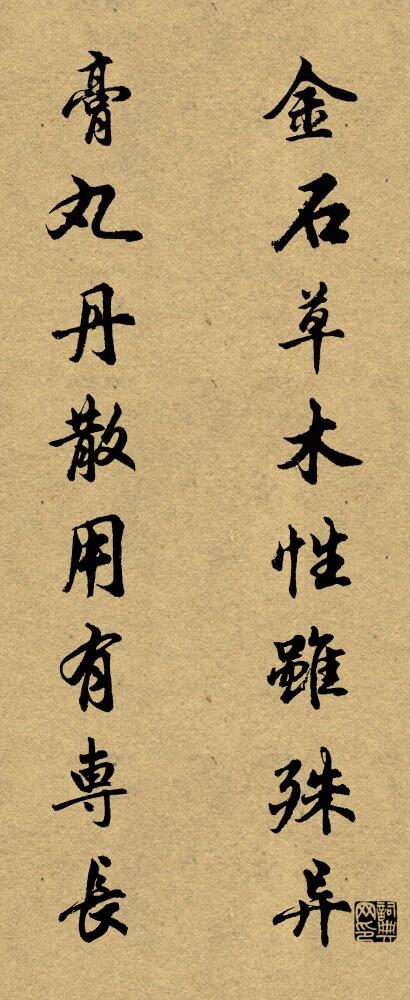 金石草木性雖殊异
膏丸丹散用有専長
詞典网印